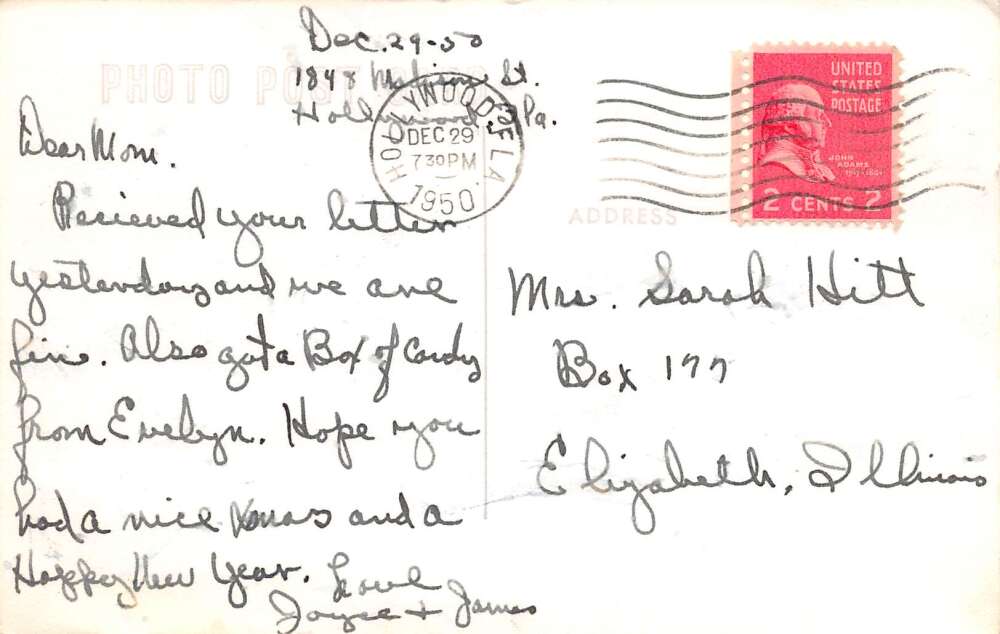 Dec. 29-50
1848 Madison St.
Hollywood, Fla.
PHOTO POST
Dear Mom.
Recieved your letter
yesterday and we are
fine. Also got a Box of Candy
from Evelyn. Hope you
had a nice Xmas and a
Happy New Year. Love
Joyce + James
HOLLYWOOD, FLA
DEC 29
7 30 PM
1950
UNITED
STATES
POSTAGE
JOHN
ADAMS
2 CENTS 2
ADDRESS
Mrs. Sarah Hitt
Box 177
Elizabeth, Illinois